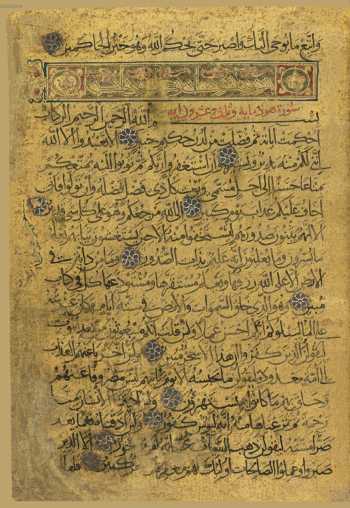 واتبع ما يوحى اليك واصبر حتى يحكم الله وهو خير الحاكمين
سورة هود مائة وثلث وعشرون اية
بسم الله الرحمن الرحيم الر كتاب
احكمت اياته ثم فصلت من لدن حكيم خبير الا تعبدوا الا الله
انني لكم منه نذير وبشير وان استغفروا ربكم ثم توبوا اليه يمتعكم
متاعا حسنا الى اجل مسمى ويؤت كل ذي فضل فضله وان تولوا فاني
اخاف عليكم عذاب يوم كبير الى الله مرجعكم وهو على كل شيء قدير
الا انهم يثنون صدورهم ليستخفوا منه الا حين يستغشون ثيابهم يعلم
ما يسرون وما يعلنون انه عليم بذات الصدور وما من دابة في
الارض الا على الله رزقها ويعلم مستقرها ومستودعها كل في كتاب
مبين وهو الذي خلق السموات والارض في ستة ايام وكان عرشه
على الماء ليبلوكم ايكم احسن عملا ولئن قلت انكم مبعوثون من بعد الموت
ليقولن الذين كفروا ان هذا الا سحر مبين ولئن اخرنا عنهم العذاب
الى امة معدودة ليقولن ما يحبسه الا يوم ياتيهم ليس مصروفا عنهم
وحاق بهم ما كانوا به يستهزؤن ولئن اذقنا الانسان منا
رحمة ثم نزعناها منه انه ليؤس كفور ولئن اذقناه نعماء بعد
ضراء مسته ليقولن ذهب السيئات عني انه لفرح فخور الا الذين
صبروا وعملوا الصالحات اولئك لهم مغفرة واجر كبير